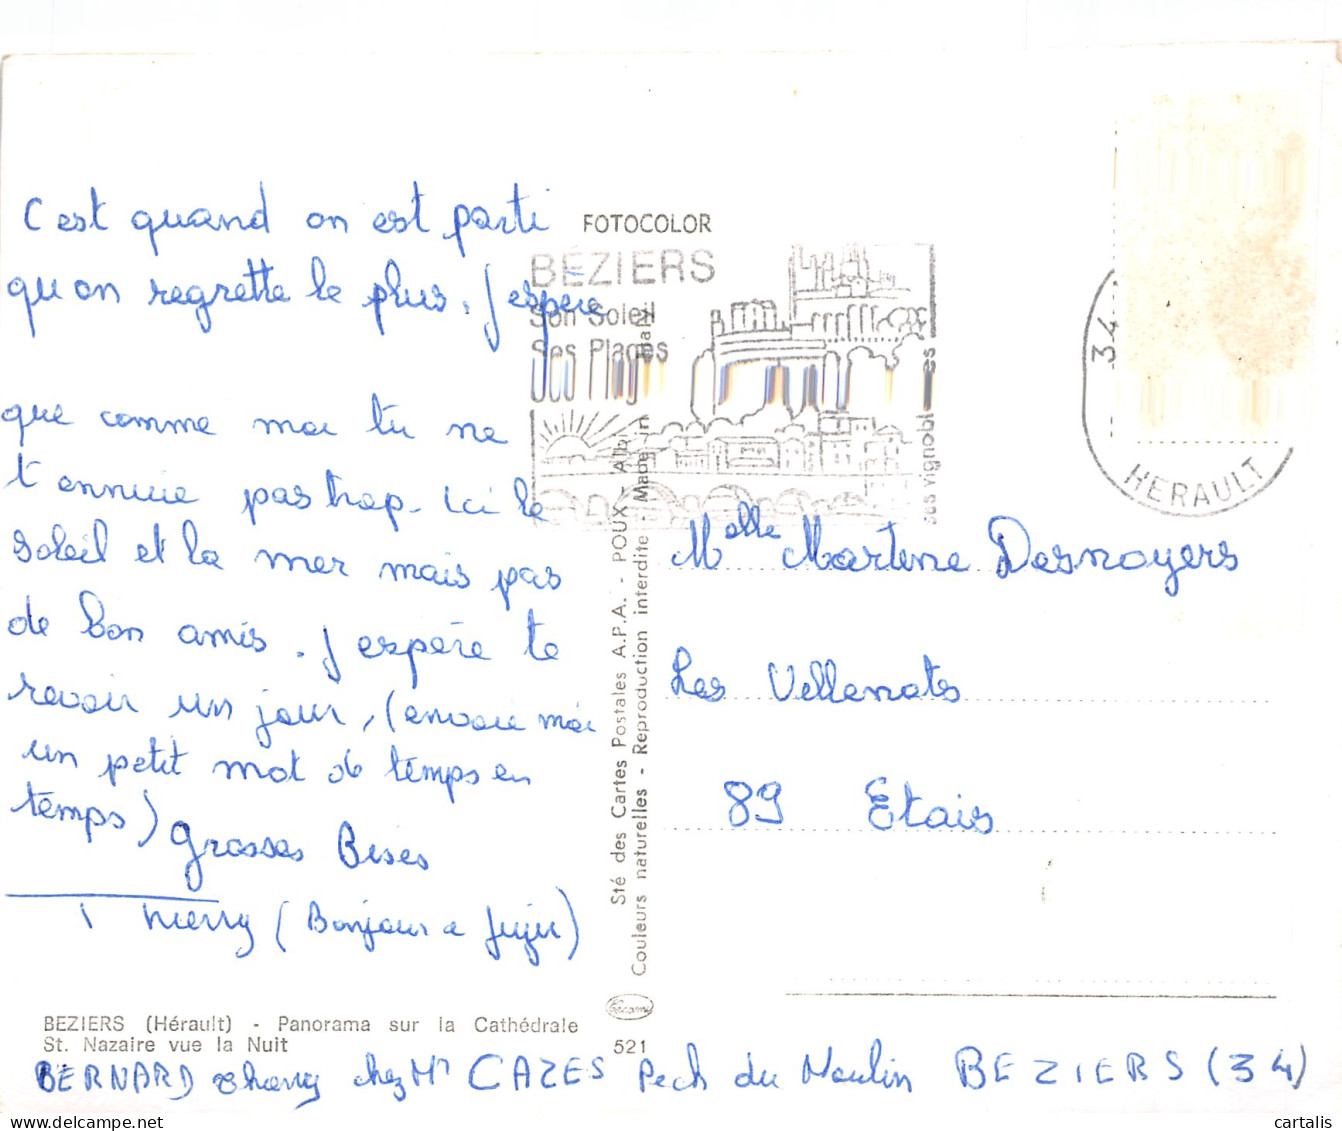 C'est quand on est parti
qu on regrette le plus. J espère
que comme moi tu ne
t ennuie pas trop. Ici le
soleil et la mer mais pas
de bon amis. J espère te
revoir un jour, (envoie moi
un petit mot de temps en
temps) Grosses Bises
Thierry (Bonjour a Juju)
FOTOCOLOR
BÉZIERS
Son Soleil
Ses Plages
ses vignobles
34
HERAULT
Melle Martine Desnoyers
Les Vellenots
89 Etais
Sté des Cartes Postales A.P.A. - POUX - Albi
Couleurs naturelles - Reproduction interdite - Made in
BEZIERS (Hérault) - Panorama sur la Cathédrale
St. Nazaire vue la Nuit
521
BERNARD Thierry chez Mr CAZES Pech du Moulin BEZIERS (34)
cartalis